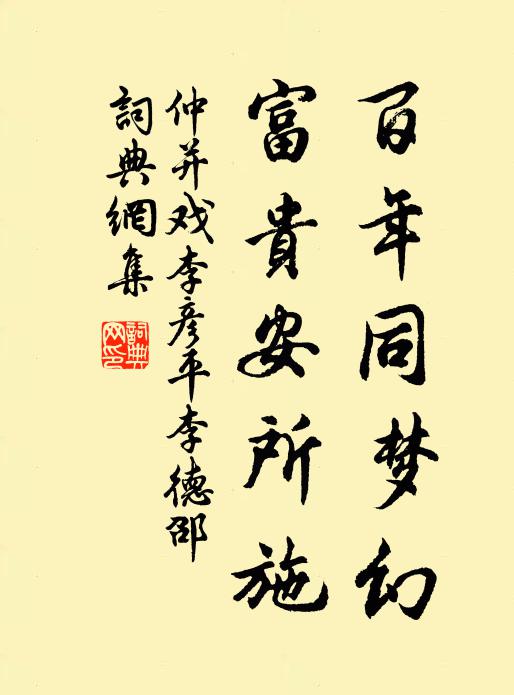 百年同梦幻
富貴安所施
仲并戏李彦平李德邵
詞典網集
詞典
网印